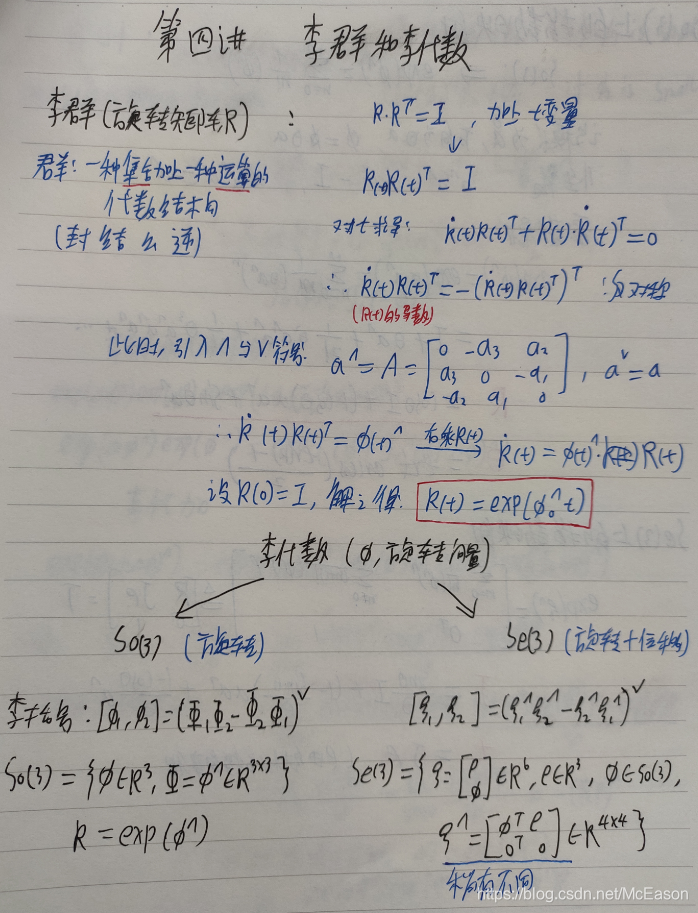 第四讲 李群和李代数
李群(旋转矩阵R): R·Rᵀ=I, 加上t变量
↓
群:一种集合加上一种运算的
代数结构
(封结幺逆)
R(t)R(t)ᵀ=I
对t求导: Ṙ(t)R(t)ᵀ+R(t)·Ṙ(t)ᵀ=0
∴ Ṙ(t)R(t)ᵀ=-(Ṙ(t)R(t)ᵀ)ᵀ :反对称
(R(t)的导数)
此时,引入∧与∨符号: a^=A=[0 -a₃ a₂
a₃ 0 -a₁
-a₂ a₁ 0], aˇ=a
∴Ṙ(t)R(t)ᵀ=ϕ(t)^ 右乘R(t)→ Ṙ(t)=ϕ(t)^·R(t)
设R(0)=I,解之得: R(t)=exp(ϕ₀^t)
李代数(ϕ,旋转向量)
So(3) (旋转) Se(3) (旋转+位移)
李括号:[ϕ₁,ϕ₂]=(Φ₁Φ₂-Φ₂Φ₁)ˇ [ξ₁,ξ₂]=(ξ₁^ξ₂^-ξ₂^ξ₁^)ˇ
So(3)={ϕ∈R³,Φ=ϕ^∈R³ˣ³} Se(3)={ξ=[ρ
ϕ]∈R⁶,ρ∈R³,ϕ∈so(3),
R=exp(ϕ^) ξ^=[ϕᵀ ρ
0ᵀ 0]∈R⁴ˣ⁴}
稍有不同
https://blog.csdn.net/McEason